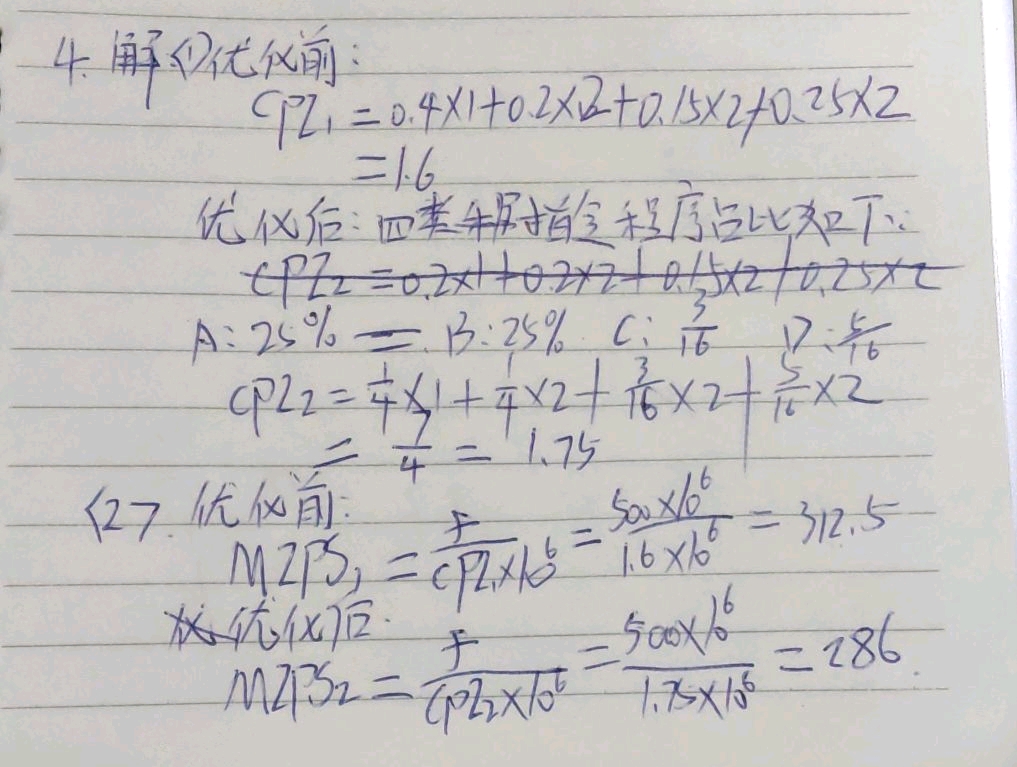 4. 解(1)优化前:
CPI₁ = 0.4×1+0.2×2+0.15×2+0.25×2
=1.6
优化后: 四类指令程序占比如下:
CPI₂ = 0.2×1+0.2×2+0.15×2+0.25×2
A: 25% B: 25% C: 3/16 D: 5/16
CPI₂ = 1/4×1+1/4×2+3/16×2+5/16×2
= 7/4 = 1.75
(2). 优化前:
MIPS₁ = F/(CPI₁×10⁶) = 500×10⁶/(1.6×10⁶) = 312.5
优化后:
MIPS₂ = F/(CPI₂×10⁶) = 500×10⁶/(1.75×10⁶) = 286